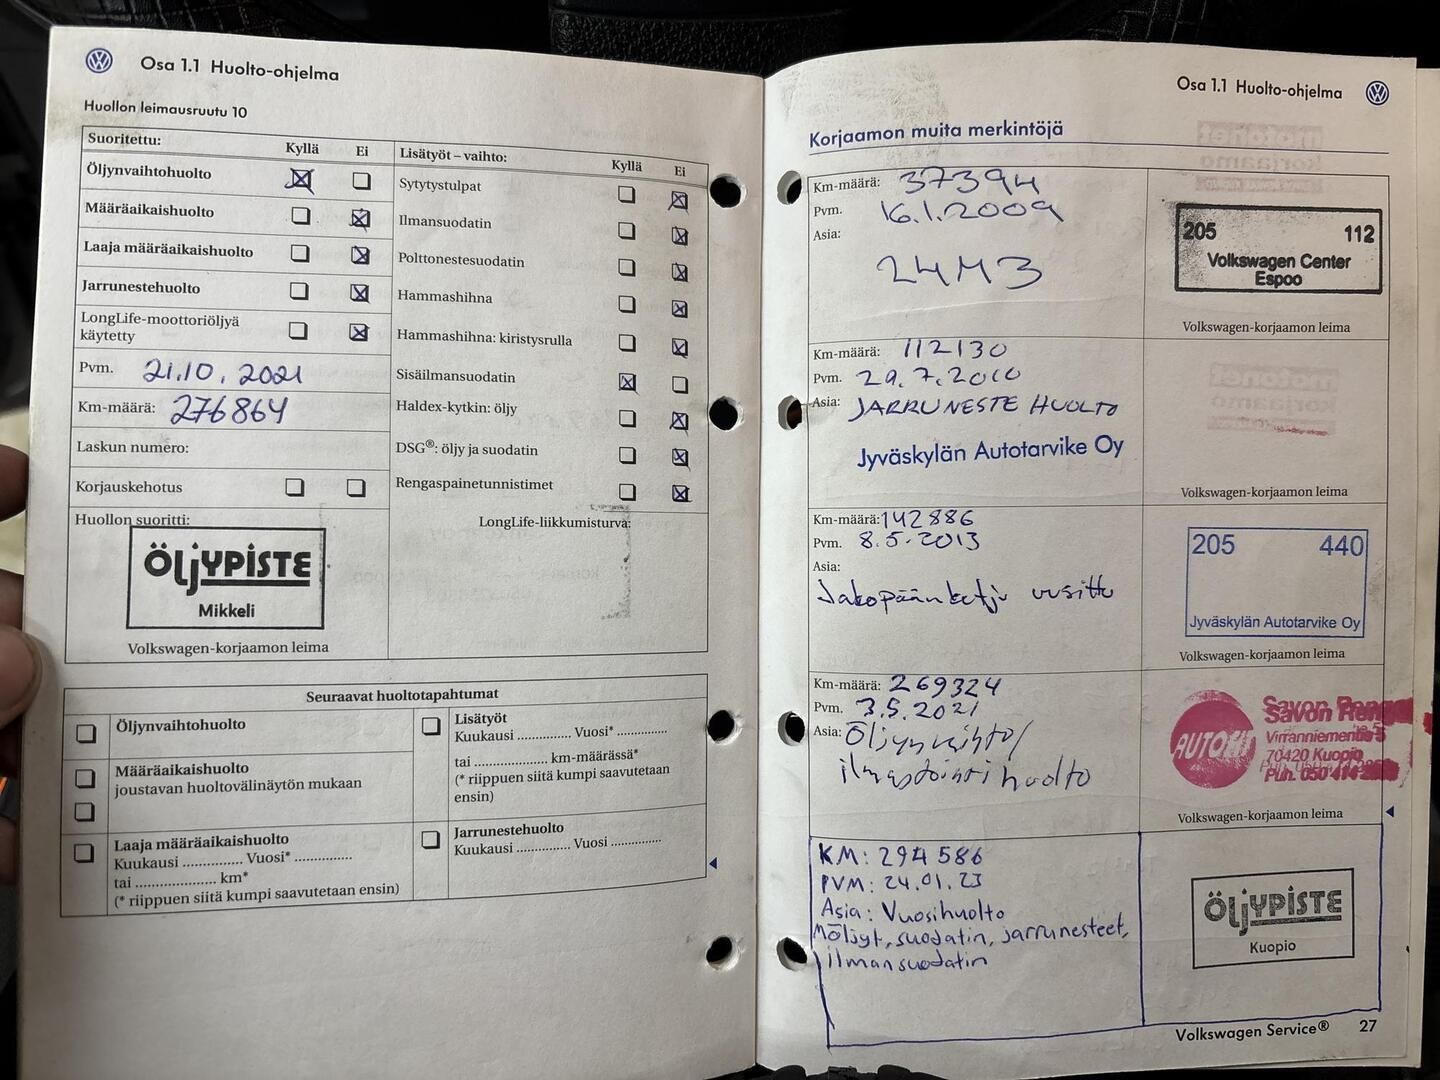 Osa 1.1 Huolto-ohjelma
Huollon leimausruutu 10
Suoritettu:
Kyllä
Ei
Öljynvaihtohuolto
Määräaikaishuolto
Laaja määräaikaishuolto
Jarrunestehuolto
LongLife-moottoriöljyä
käytetty
Pvm. 21.10.2021
Km-määrä: 276864
Laskun numero:
Korjauskehotus
Huollon suoritti:
ÖljYPISTE
Mikkeli
Volkswagen-korjaamon leima
Lisätyöt – vaihto:
Kyllä
Ei
Sytytystulpat
Ilmansuodatin
Polttonestesuodatin
Hammashihna
Hammashihna: kiristysrulla
Sisäilmansuodatin
Haldex-kytkin: öljy
DSG®: öljy ja suodatin
Rengaspainetunnistimet
LongLife-liikkumisturva:
Seuraavat huoltotapahtumat
Öljynvaihtohuolto
Määräaikaishuolto
joustavan huoltovälinäytön mukaan
Laaja määräaikaishuolto
Kuukausi ............... Vuosi* ...............
tai ..................... km*
(* riippuen siitä kumpi saavutetaan ensin)
Lisätyöt
Kuukausi .............. Vuosi* .............
tai ................... km-määrässä*
(* riippuen siitä kumpi saavutetaan
ensin)
Jarrunestehuolto
Kuukausi .............. Vuosi .............
Osa 1.1 Huolto-ohjelma
Korjaamon muita merkintöjä
Km-määrä: 37394
Pvm. 16.1.2009
Asia:
24M3
205 112
Volkswagen Center
Espoo
Volkswagen-korjaamon leima
Km-määrä: 112130
Pvm. 29.7.2010
Asia: JARRUNESTE HUOLTO
Jyväskylän Autotarvike Oy
Volkswagen-korjaamon leima
Km-määrä: 142886
Pvm. 8.5.2013
Asia:
Jakopäänketju uusittu
205 440
Jyväskylän Autotarvike Oy
Volkswagen-korjaamon leima
Km-määrä: 269324
Pvm. 3.5.2021
Asia: Öljynvaihto/
ilmastointihuolto
AUTOFIT
Savon
Virranniementie 5
70420 Kuopio
Puh. 050
Volkswagen-korjaamon leima
KM: 294 586
PVM: 24.01.23
Asia: Vuosihuolto
Möljyt, suodatin, jarrunesteet,
ilmansuodatin
ÖljYPISTE
Kuopio
Volkswagen Service® 27